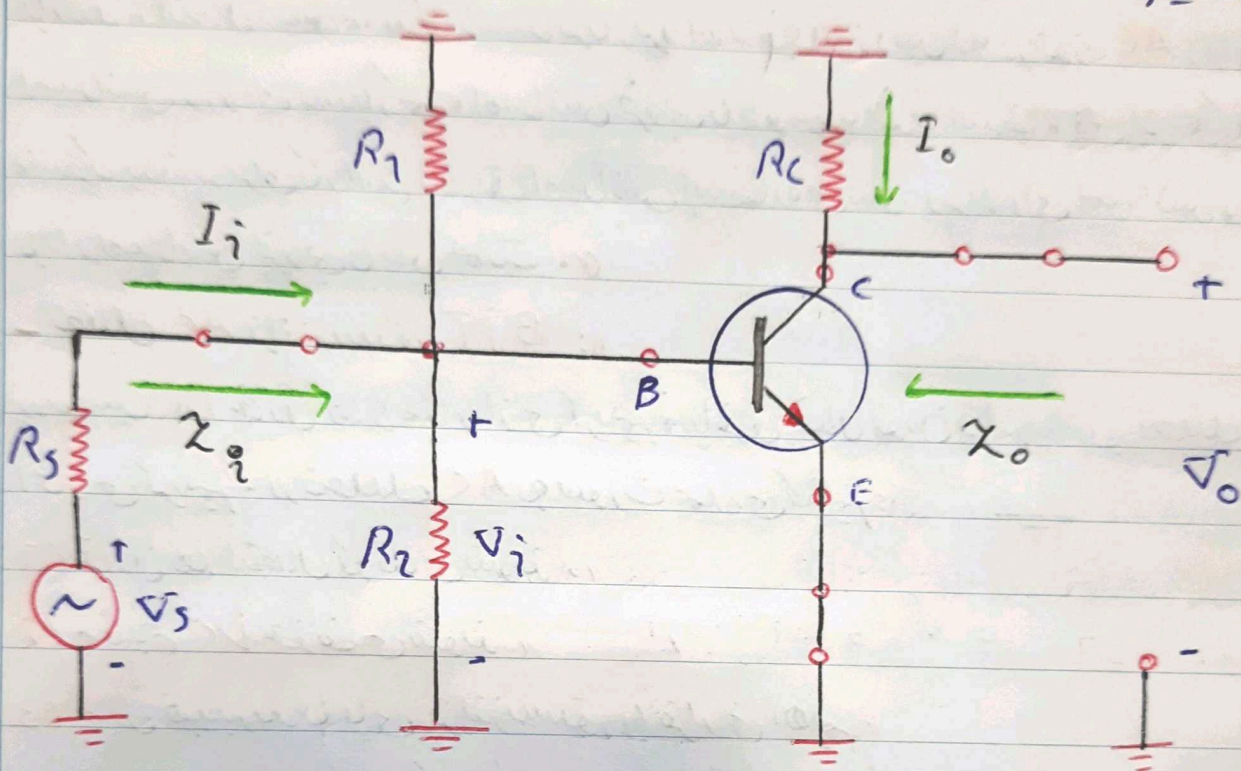 R1
RC
Io
Ii
C
+
B
Zi
+
Zo
RS
E
Vo
+
R2
Vi
~
VS
-
-
-